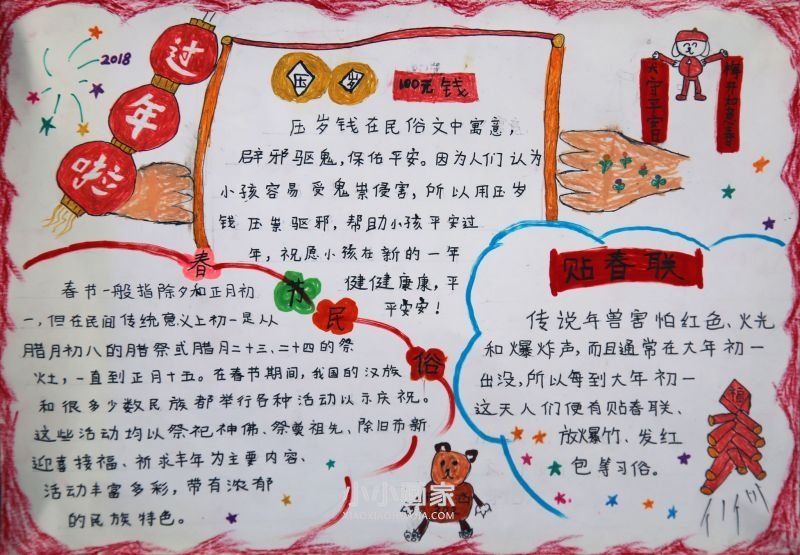 过年啦
2018
压岁
100元钱
压岁钱在民俗文中寓意,
辟邪驱鬼,保佑平安。因为人们认为
小孩容易受鬼祟侵害,所以用压岁
钱压祟驱邪,帮助小孩平安过
年,祝愿小孩在新的一年
健健康康,平
平安安!
春节民俗
春节一般指除夕和正月初
一,但在民间传统意义上初一是从
腊月初八的腊祭或腊月二十三、二十四的祭
灶,一直到正月十五。在春节期间,我国的汉族
和很多少数民族都举行各种活动以示庆祝。
这些活动均以祭祀神佛、祭奠祖先、除旧布新
迎喜接福、祈求丰年为主要内容、
活动丰富多彩,带有浓郁
的民族特色。
贴春联
传说年兽害怕红色、火光
和爆炸声,而且通常在大年初一
出没,所以每到大年初一
这天人们便有贴春联、
放爆竹、发红
包等习俗。
福
小小画家
XIAOXIAOHUAJIA.COM